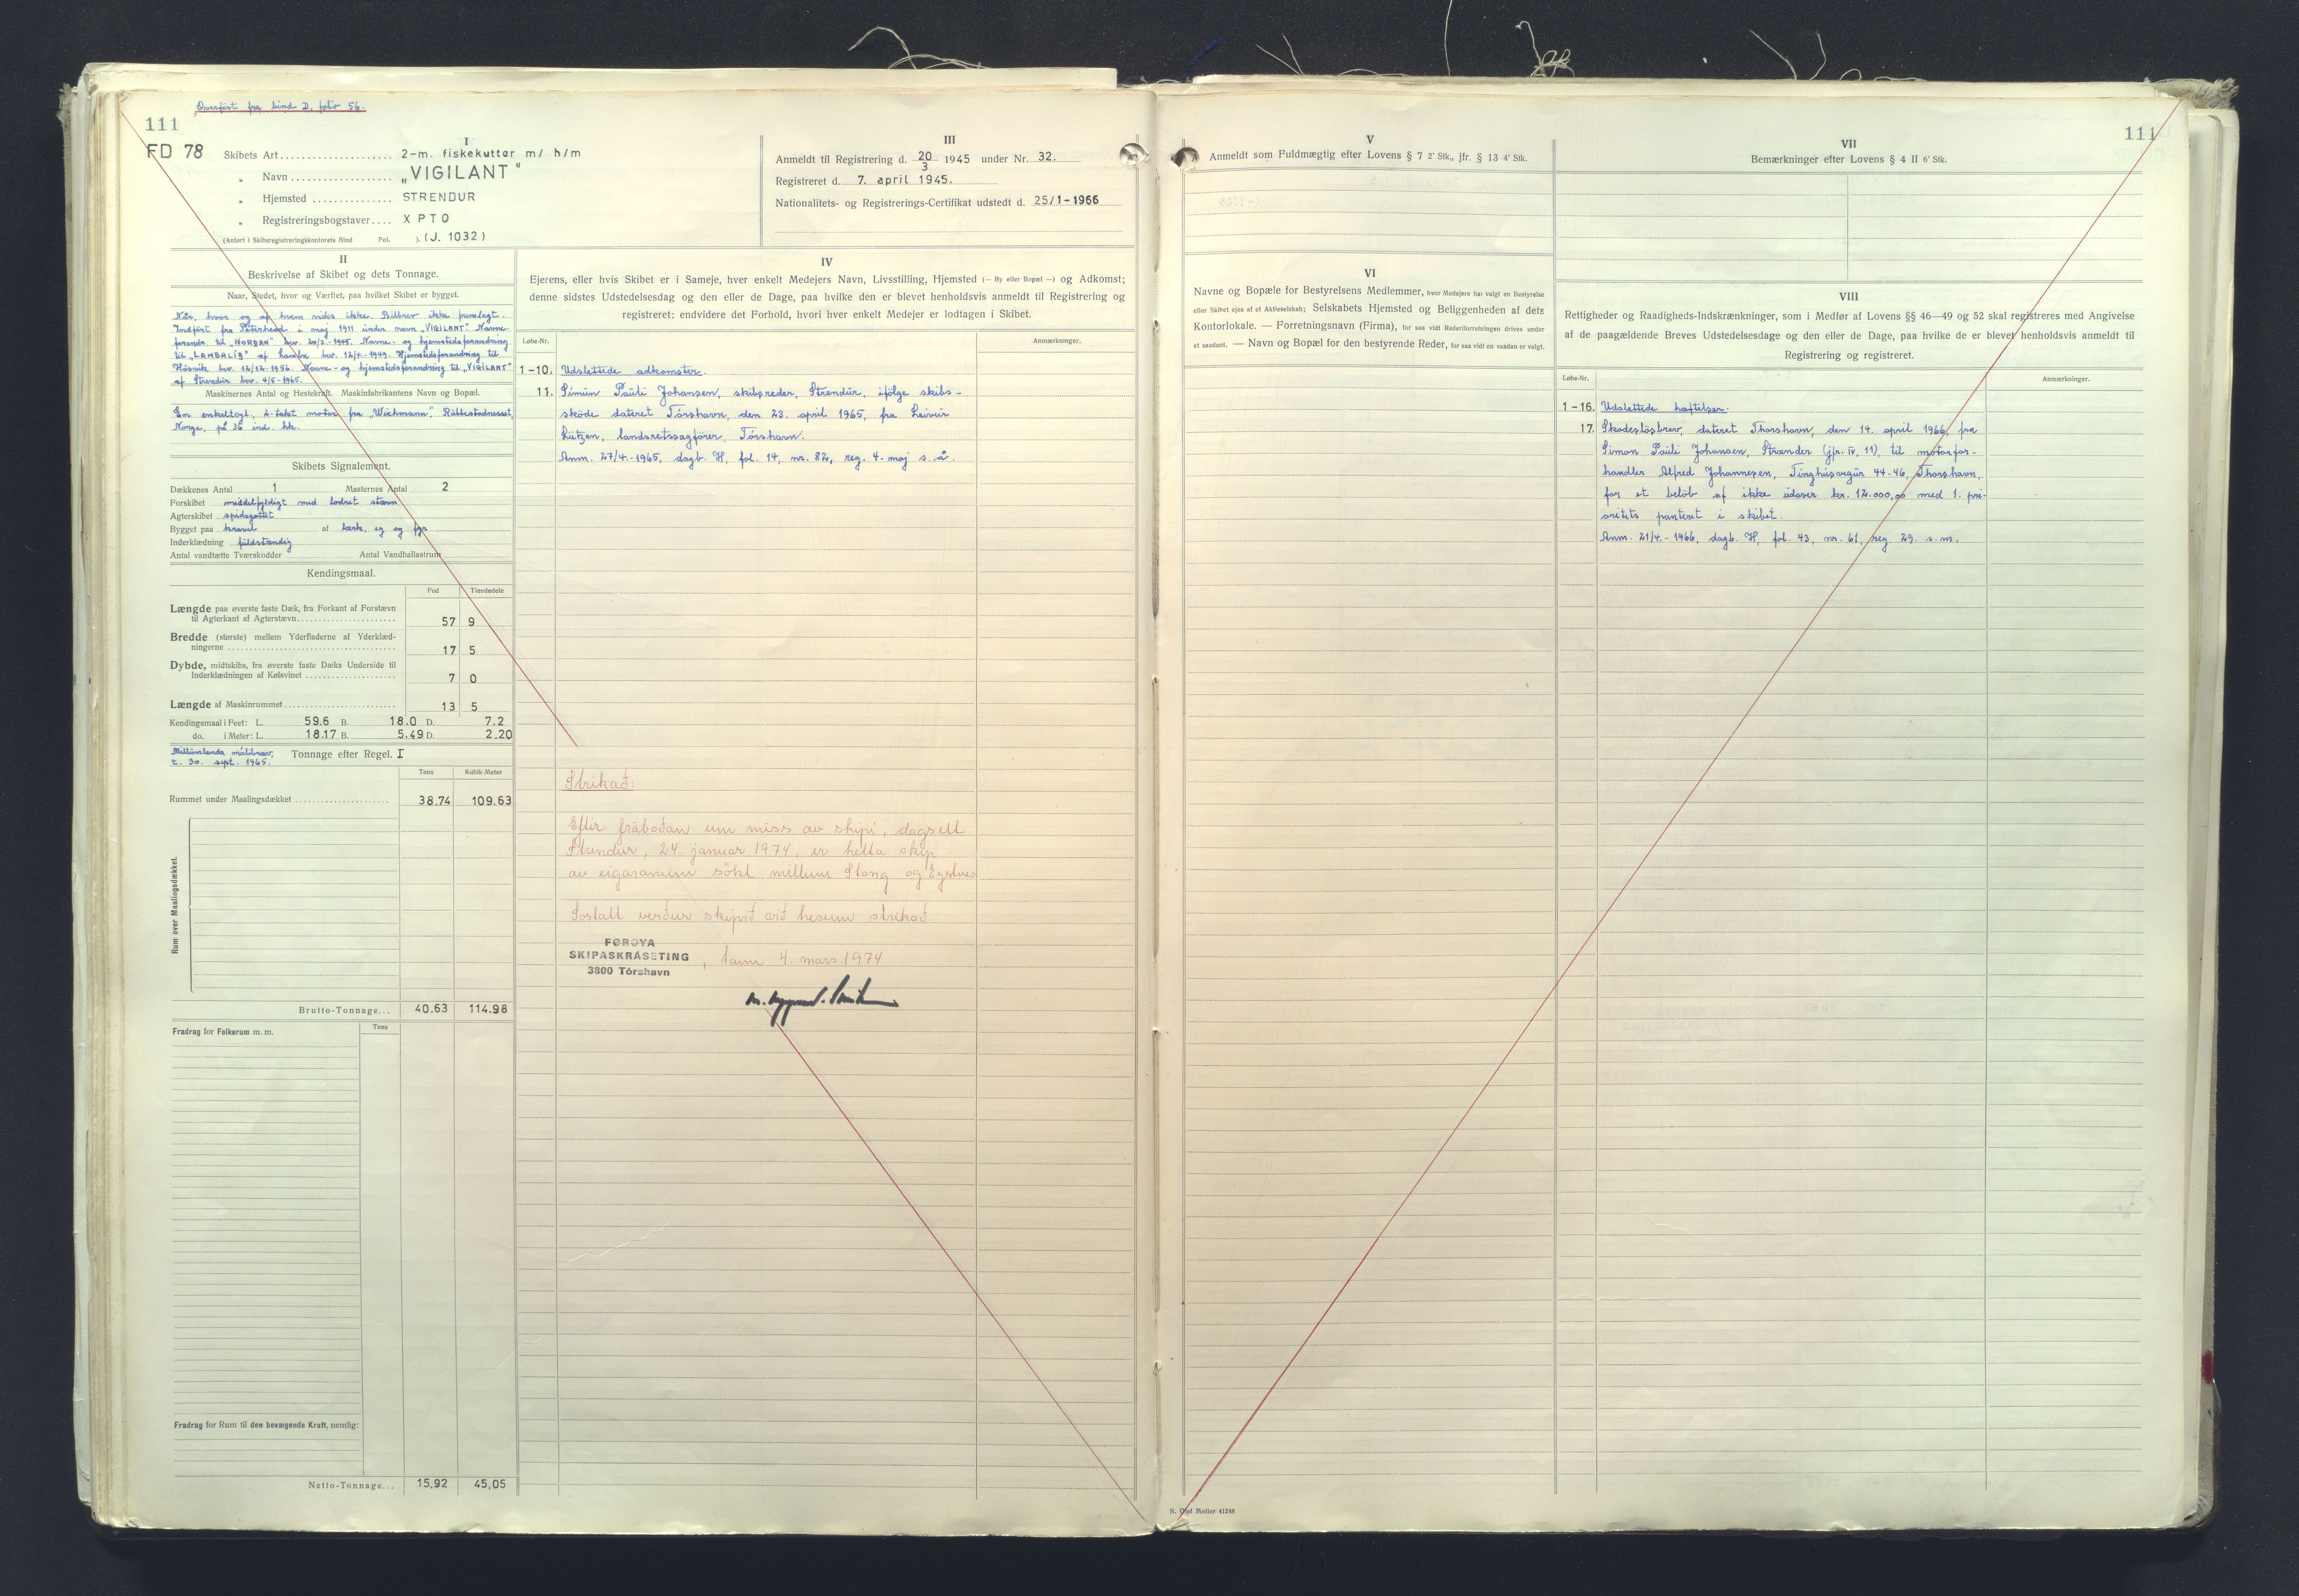 Overført fra bind D, folio 56.
111
FD 78
I
Skibets Art.................... 2-m. fiskekutter m/ h/m
„ Navn................... „VIGILANT"
„ Hjemsted............... STRENDUR
„ Registreringsbogstaver.... XPTO
(Anført i Skibsregistreringskontorets Bind Fol. ). (J. 1032)
III
Anmeldt til Registrering d. 20/3 1945 under Nr. 32.
Registreret d. 7. april 1945.
Nationalitets- og Registrerings-Certifikat udstedt d. 25/1-1966
II
Beskrivelse af Skibet og dets Tonnage.
Naar, Stedet, hvor og Værftet, paa hvilket Skibet er bygget.
Når, hvor og af hvem vides ikke. Bilbrev ikke fremlagt.
Indført fra Peterhead i maj 1911 under navn „VIGILANT" Navne-
forandr. til „NORÐAN" bev. 20/3.-1945. Navne- og hjemstedsforandring
til „LAMBALÍÐ" af Lamba bev. 12/4.-1949. Hjemstedsforandring til
Hósvík bev. 12/12-1956. Navne- og hjemstedsforandring til „VIGILANT"
af Strendur bev. 4/5-1965.
Maskinernes Antal og Hestekraft. Maskinfabrikantens Navn og Bopæl.
En enkeltcyl., 2-takt motor fra „Wichmann", Rubbestadnesset,
Norge, på 36 ind. hk.
Skibets Signalement.
Dækkenes Antal 1 Masternes Antal 2
Forskibet middelfyldigt med lodret stævn
Agterskibet spidsgattet
Bygget paa kravel af lærk, eg og fyr
Inderklædning fuldstændig
Antal vandtætte Tværskodder Antal Vandballastrum
Kendingsmaal.
Fod Tiendedele
Længde paa øverste faste Dæk, fra Forkant af Forstævn
til Agterkant af Agterstævn........................ 57 9
Bredde (største) mellem Yderfladerne af Yderklæd-
ningerne ........................................ 17 5
Dybde, midtskibs, fra øverste faste Dæks Underside til
Inderklædningen af Kølsvinet ...................... 7 0
Længde af Maskinrummet............................ 13 5
Kendingsmaal i Feet: L. 59.6 B. 18.0 D. 7.2
do. i Meter: L. 18.17 B. 5.49 D. 2.20
Millumlanda málibræv,
t. 30. sept. 1965. Tonnage efter Regel. I
Tons Kubik-Meter
Rummet under Maalingsdækket ...................... 38.74 109.63
Rum over Maalingsdækket.
Brutto-Tonnage... 40.63 114.98
Fradrag for Folkerum m. m. Tons
Fradrag for Rum til den bevægende Kraft, nemlig:
Netto-Tonnage... 15,92 45,05
IV
Ejerens, eller hvis Skibet er i Sameje, hver enkelt Medejers Navn, Livsstilling, Hjemsted (— By eller Bopæl —) og Adkomst;
denne sidstes Udstedelsesdag og den eller de Dage, paa hvilke den er blevet henholdsvis anmeldt til Registrering og
registreret; endvidere det Forhold, hvori hver enkelt Medejer er lodtagen i Skibet.
Løbe-Nr. Anmærkninger.
1-10. Udslettede adkomster.
11. Símun Pauli Johansen, skibsreder, Strendur, ifølge skibs-
skøde dateret Tórshavn, den 23. april 1965, fra Leivur
Lützen, landsretssagfører, Tórshavn.
Anm. 27/4.-1965, dagb. H, fol. 14, nr. 82, reg. 4. maj s. å.
Strikað:
Eftir fráboðan um miss av skipi, dagsett
Strendur, 24. januar 1974, er hetta skip
av eigaranum søkt millum Stong og Eystnes
Soslatt verður skipið við hesum strikað.
FØROYA
SKIPASKRÁSETING
3800 Tórshavn
, tann 4. mars 1974
V
Anmeldt som Fuldmægtig efter Lovens § 7 2' Stk., jfr. § 13 4' Stk.
VI
Navne og Bopæle for Bestyrelsens Medlemmer, hvor Medejere har valgt en Bestyrelse
eller Skibet ejes af et Aktieselskab; Selskabets Hjemsted og Beliggenheden af dets
Kontorlokale. — Forretningsnavn (Firma), for saa vidt Rederiforretningen drives under
et saadant. — Navn og Bopæl for den bestyrende Reder, for saa vidt en saadan er valgt.
111
VII
Bemærkninger efter Lovens § 4 II 6' Stk.
VIII
Rettigheder og Raadigheds-Indskrænkninger, som i Medfør af Lovens §§ 46—49 og 52 skal registreres med Angivelse
af de paagældende Breves Udstedelsesdage og den eller de Dage, paa hvilke de er blevet henholdsvis anmeldt til
Registrering og registreret.
Løbe-Nr. Anmærkninger.
1-16. Udslettede hæftelser.
17. Skadesløsbrev, dateret Thorshavn, den 14. april 1966, fra
Simon Pauli Johansen, Strænder (jfr. IV, 11), til motorfor-
handler Alfred Johannesen, Tinghúsvegur 44-46, Thorshavn,
for et beløb af ikke udover kr. 12.000,00 med 1. pri-
oritets panteret i skibet.
Anm. 21/4.-1966, dagb. H, fol. 43, nr. 61, reg. 29. s. m.
N. Olaf Møller 41248